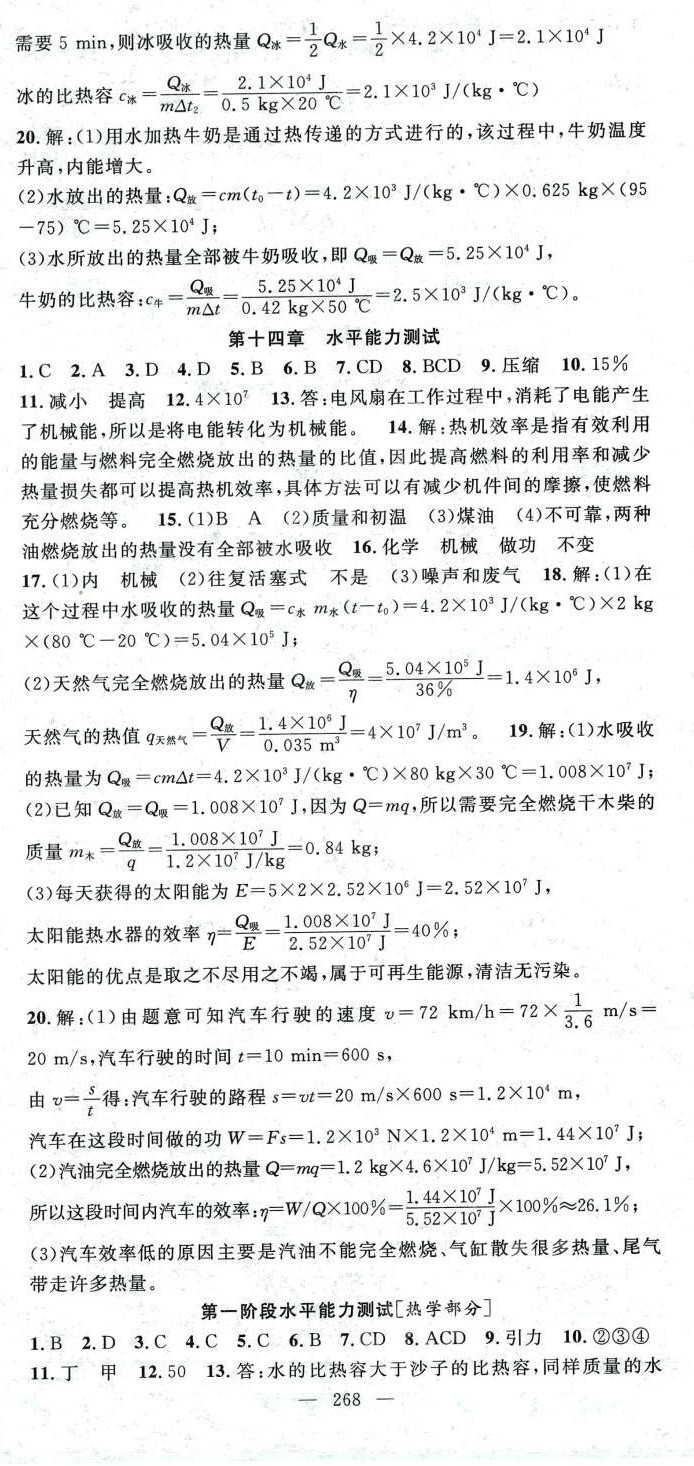 需要 5 min,则冰吸收的热量 Q冰=1/2Q水=1/2×4.2×10⁴ J=2.1×10⁴ J
冰的比热容 c冰=Q冰/mΔt₂=2.1×10⁴ J/0.5 kg×20 ℃=2.1×10³ J/(kg·℃)
20.解:(1)用水加热牛奶是通过热传递的方式进行的,该过程中,牛奶温度
升高,内能增大。
(2)水放出的热量:Q放=cm(t₀-t)=4.2×10³ J/(kg·℃)×0.625 kg×(95
-75) ℃=5.25×10⁴ J;
(3)水所放出的热量全部被牛奶吸收,即 Q吸=Q放=5.25×10⁴ J,
牛奶的比热容:c牛=Q吸/mΔt=5.25×10⁴ J/0.42 kg×50 ℃=2.5×10³ J/(kg·℃)。
第十四章 水平能力测试
1.C 2.A 3.D 4.D 5.B 6.B 7.CD 8.BCD 9.压缩 10.15%
11.减小 提高 12.4×10⁷ 13.答:电风扇在工作过程中,消耗了电能产生
了机械能,所以是将电能转化为机械能。 14.解:热机效率是指有效利用
的能量与燃料完全燃烧放出的热量的比值,因此提高燃料的利用率和减少
热量损失都可以提高热机效率,具体方法可以有减少机件间的摩擦,使燃料
充分燃烧等。 15.(1)B A (2)质量和初温 (3)煤油 (4)不可靠,两种
油燃烧放出的热量没有全部被水吸收 16.化学 机械 做功 不变
17.(1)内 机械 (2)往复活塞式 不是 (3)噪声和废气 18.解:(1)在
这个过程中水吸收的热量 Q吸=c水 m水(t-t₀)=4.2×10³ J/(kg·℃)×2 kg
×(80 ℃-20 ℃)=5.04×10⁵ J;
(2)天然气完全燃烧放出的热量 Q放=Q吸/η=5.04×10⁵ J/36%=1.4×10⁶ J,
天然气的热值 q天然气=Q放/V=1.4×10⁶ J/0.035 m³=4×10⁷ J/m³。 19.解:(1)水吸收
的热量为 Q吸=cmΔt=4.2×10³ J/(kg·℃)×80 kg×30 ℃=1.008×10⁷ J;
(2)已知 Q放=Q吸=1.008×10⁷ J,因为 Q=mq,所以需要完全燃烧干木柴的
质量 m木=Q放/q=1.008×10⁷ J/1.2×10⁷ J/kg=0.84 kg;
(3)每天获得的太阳能为 E=5×2×2.52×10⁶ J=2.52×10⁷ J,
太阳能热水器的效率 η=Q吸/E=1.008×10⁷ J/2.52×10⁷ J=40%;
太阳能的优点是取之不尽用之不竭,属于可再生能源,清洁无污染。
20.解:(1)由题意可知汽车行驶的速度 v=72 km/h=72×1/3.6 m/s=
20 m/s,汽车行驶的时间 t=10 min=600 s,
由 v=s/t得:汽车行驶的路程 s=vt=20 m/s×600 s=1.2×10⁴ m,
汽车在这段时间做的功 W=Fs=1.2×10³ N×1.2×10⁴ m=1.44×10⁷ J;
(2)汽油完全燃烧放出的热量 Q=mq=1.2 kg×4.6×10⁷ J/kg=5.52×10⁷ J,
所以这段时间内汽车的效率:η=W/Q×100%=1.44×10⁷ J/5.52×10⁷ J×100%≈26.1%;
(3)汽车效率低的原因主要是汽油不能完全燃烧、气缸散失很多热量、尾气
带走许多热量。
第一阶段水平能力测试[热学部分]
1.B 2.D 3.C 4.C 5.C 6.B 7.CD 8.ACD 9.引力 10.②③④
11.丁 甲 12.50 13.答:水的比热容大于沙子的比热容,同样质量的水
— 268 —